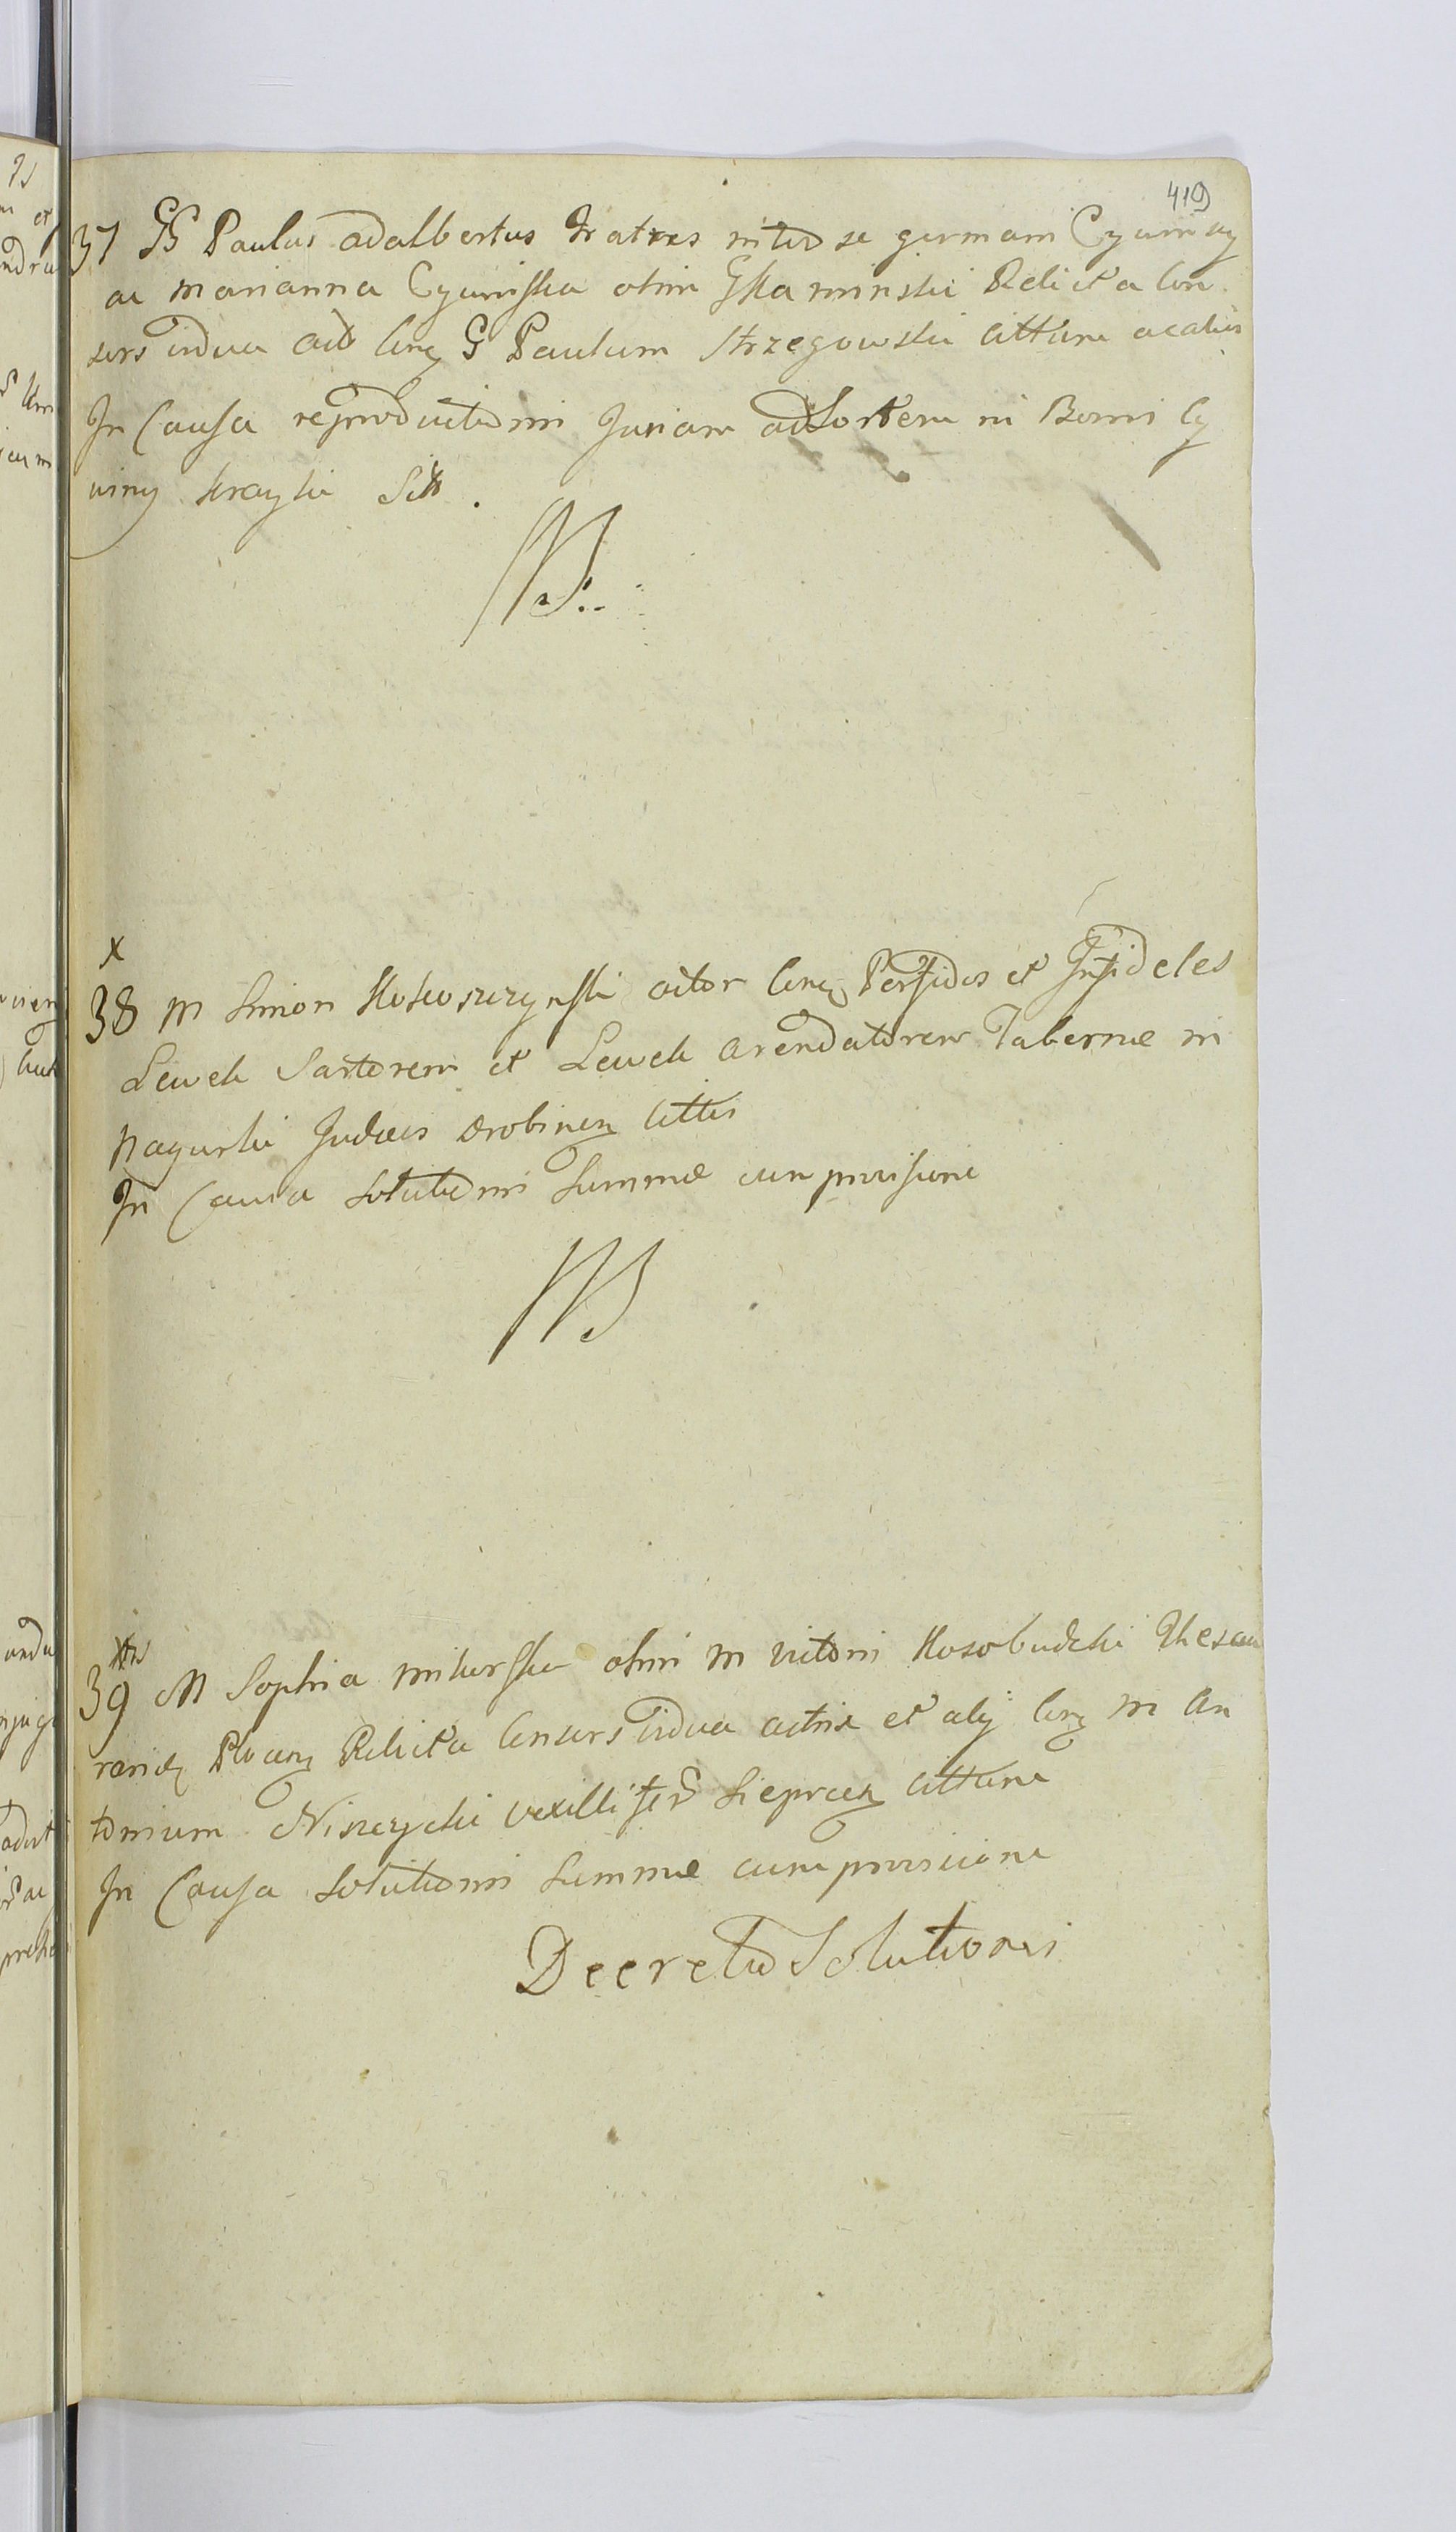 419
37 GG Paulus adalbertus Fratres inter se germani
ac Marianna olim G Kaminski Relicta Con
sors vidua act Cnq G Paulum Strzegowski cittum acalias
In Causa reproductionis Jurium ad Sortem in Bonis Cy
winy krayki Sitt.
x
38 M Simon Kokoszczynski actor Cnq Perfidos et Infideles
Lewek Sartorem et Lewek arendatorem Tabernæ in
Nagurki Judæis Drobinen cittis
In Causa Solutionis Summæ cum provisione
39 M Sophia Mikorska olim M Victorii Kosobudzki Thesau
rarii Plocen Relicta Consors vidua actrix et alij Cnq M An
tonium Niszczycki vexillifer Sieprcen cittum
In Causa Solutionis Summæ cum provisione
Decretum Solutionis